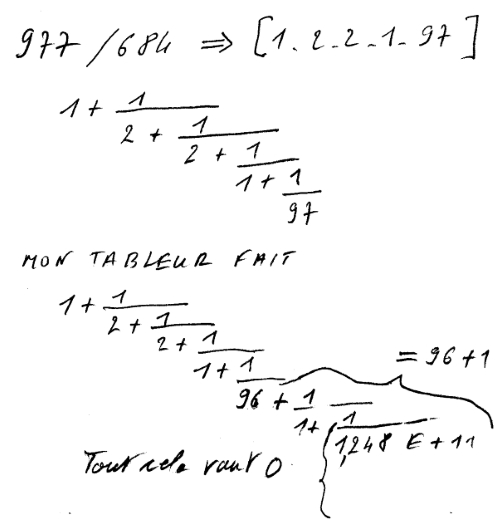 977 / 684 ⇒ [1. 2 - 2 - 1 - 97]
1 + 1
2 + 1
2 + 1
1 + 1
97
MON TABLEUR FAIT
1 + 1
2 + 1
2 + 1
1 + 1
= 96 + 1
96 + 1
1 + 1
1,248 E + 11
Tout cela vaut 0